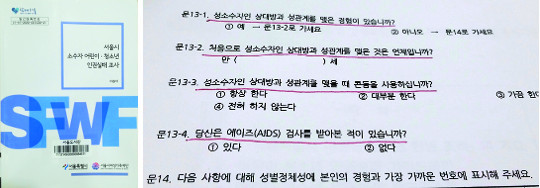 서울시
소수자 어린이·청소년
인권실태 조사
SFWF
서울특별시
문13-1. 성소수자인 상대방과 성관계를 맺은 경험이 있습니까?
① 예 → 문13-2로 가세요 ② 아니오 → 문14로 가세요
문13-2. 처음으로 성소수자인 상대방과 성관계를 맺은 것은 언제입니까?
만 ( ) 세
문13-3. 성소수자인 상대방과 성관계를 맺을 때 콘돔을 사용하십니까?
① 항상 한다 ② 대부분 한다 ③ 가끔 한
④ 전혀 하지 않는다
문13-4. 당신은 에이즈(AIDS) 검사를 받아본 적이 있습니까?
① 있다 ② 없다
문14. 다음 사항에 대해 성별정체성에 본인의 경험과 가장 가까운 번호에 표시해 주세요.